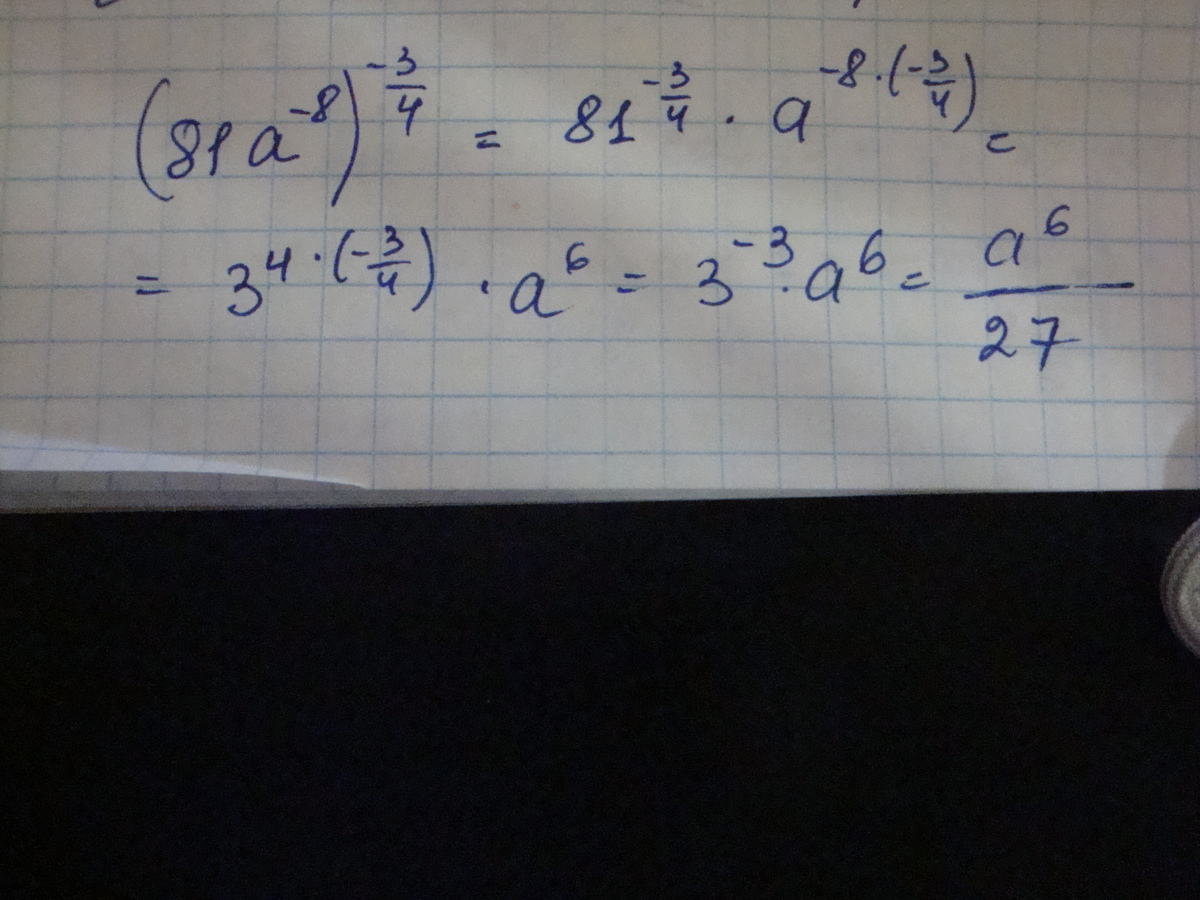 (81a^{-8})^{-\frac{3}{4}} = 81^{-\frac{3}{4}} · a^{-8·(-\frac{3}{4})} =
= 3^{4·(-\frac{3}{4})} · a^6 = 3^{-3} · a^6 = \frac{a^6}{27}